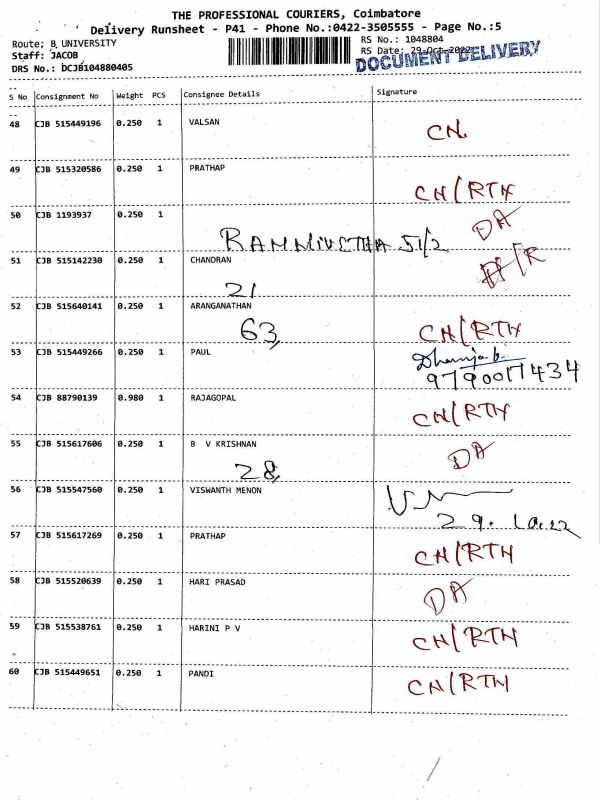 THE PROFESSIONAL COURIERS, Coimbatore
Delivery Runsheet - P41 - Phone No.:0422-3505555 - Page No.:5
Route; B, UNIVERSITY
Staff: JACOB
DRS No.: DCJB104880405
RS No.: 1048804
RS Date: 29-Oct-2022
DOCUMENT DELIVERY
S No Consignment No Weight PCS Consignee Details Signature
48 CJB 515449196 0.250 1 VALSAN CN
49 CJB 515320586 0.250 1 PRATHAP CN/RTN
50 CJB 1193937 0.250 1 DA
51/2
51 CJB 515142230 0.250 1 CHANDRAN
21
52 CJB 515640141 0.250 1 ARANGANATHAN CN/RTN
63
53 CJB 515449266 0.250 1 PAUL
9790017434
54 CJB 88790139 0.980 1 RAJAGOPAL CN/RTN
55 CJB 515617606 0.250 1 B V KRISHNAN DA
28
56 CJB 515547560 0.250 1 VISWANTH MENON
29.10.22
57 CJB 515617269 0.250 1 PRATHAP CN/RTN
58 CJB 515520639 0.250 1 HARI PRASAD DA
59 CJB 515538761 0.250 1 HARINI P V CN/RTN
60 CJB 515449651 0.250 1 PANDI CN/RTN